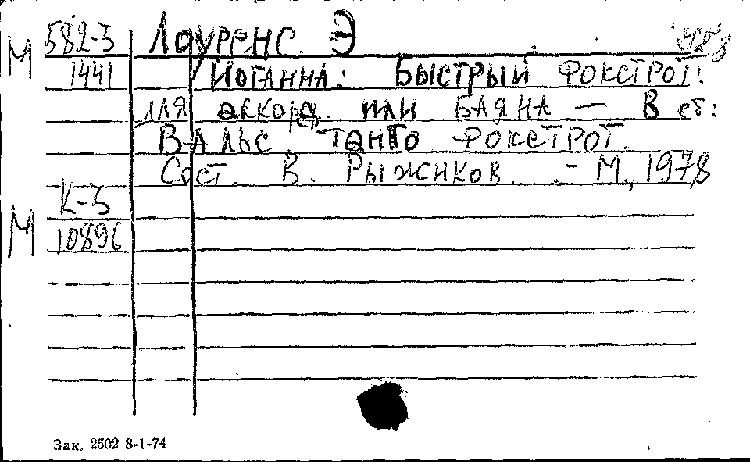 М 582-3 Лоуренс Э
1441 Иоганна: Быстрый фокстрот.
для аккорд. или баяна — В сб:
Вальс. Танго Фокстрот.
Сост. В. Рыжиков. - М., 1978
К-3
М 10896
Зак. 2502 8-1-74